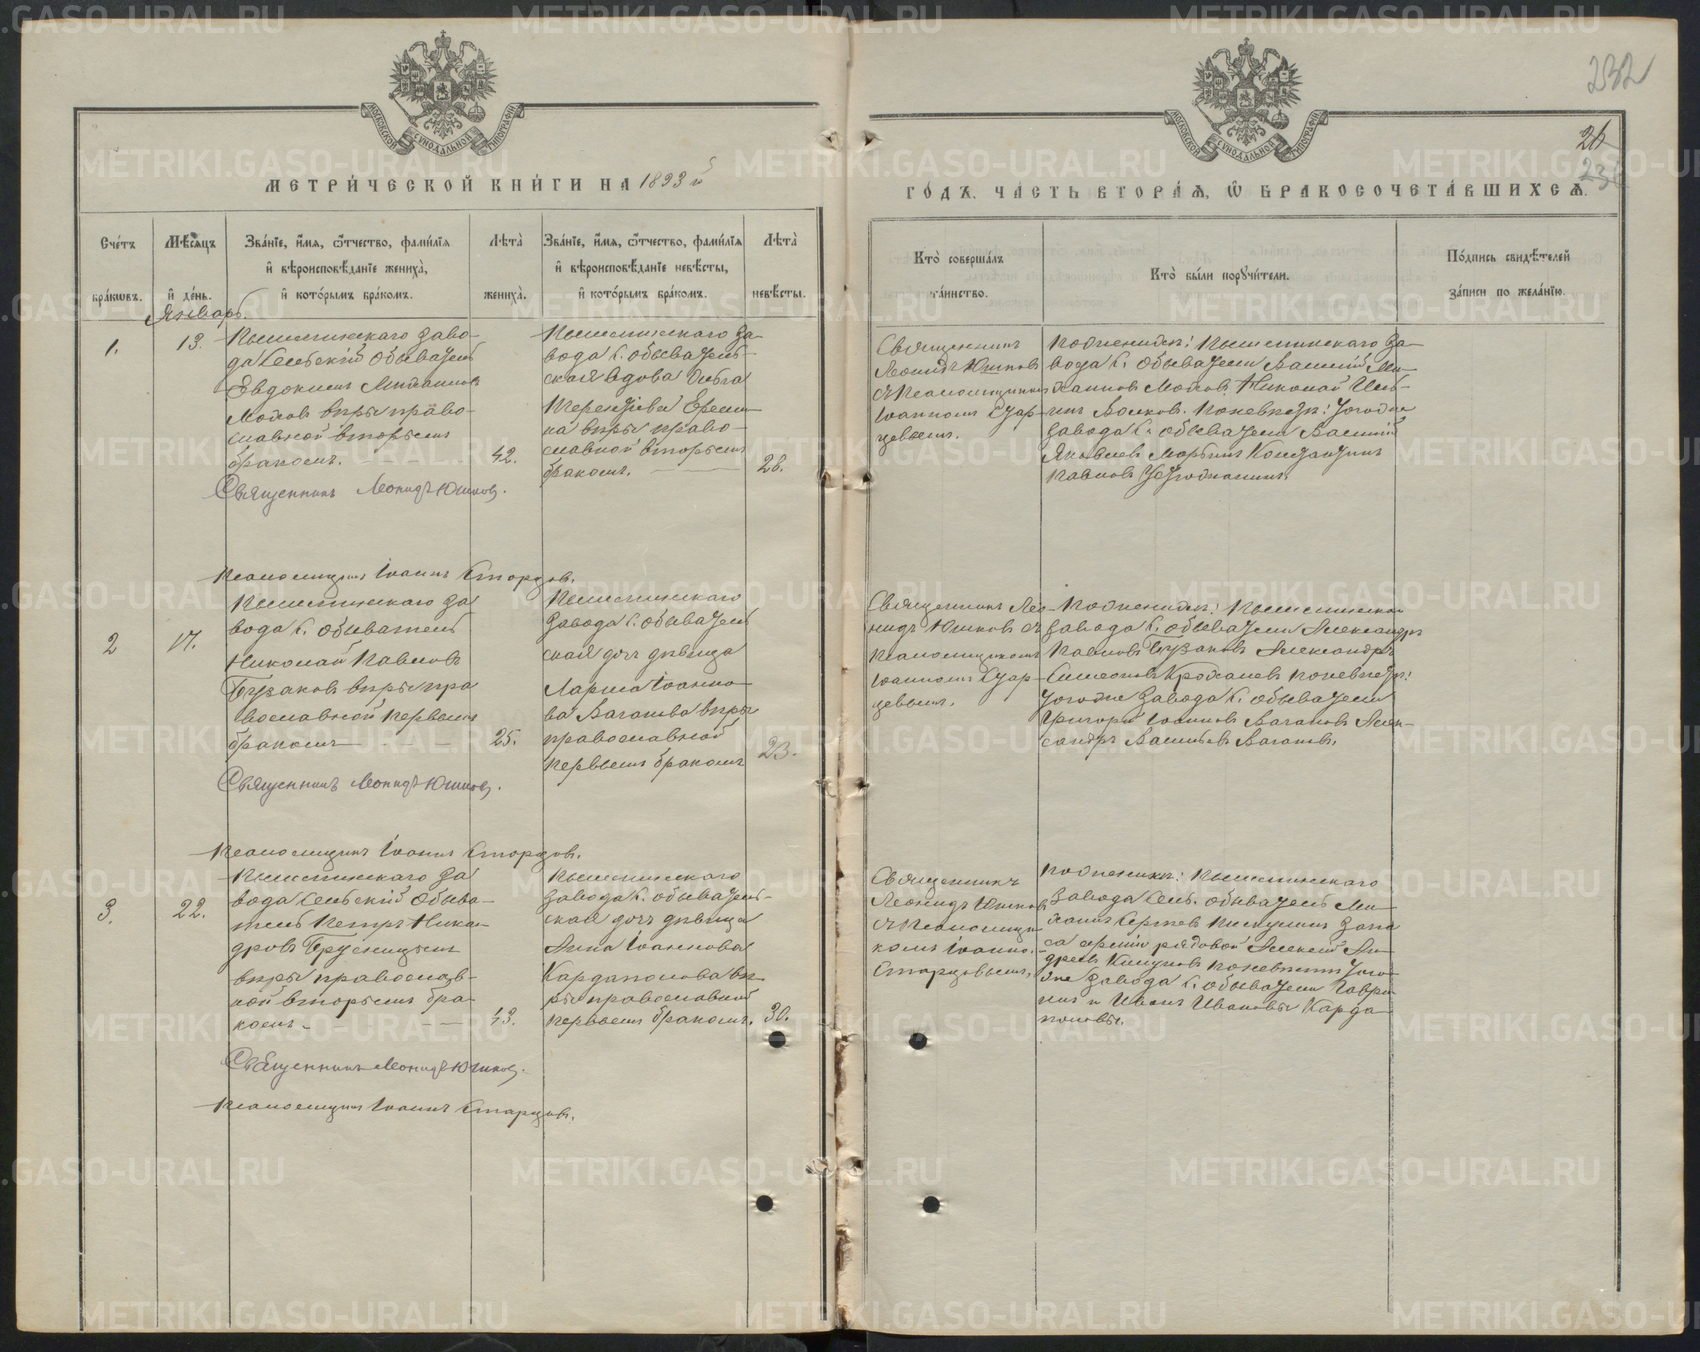 МЕТРИ́ЧЕСКОЙ КНИ́ГИ НА 1893 й
ГО́ДЪ, ЧА́СТЬ ВТОРА́Ѧ, Ѿ БРАКОСОЧЕТА́ВШИХСѦ.
232
26
МОСКОВСКОЙ СѴНОДАЛЬНОЙ ТИПОГРАФІИ
МОСКОВСКОЙ СѴНОДАЛЬНОЙ ТИПОГРАФІИ
Сче́тъ
бра́кѡвъ.
Мѣ́сѧцъ
и҆ де́нь.
Зва́нїе, и҆́мѧ, ѻ҆́тчество, фами́лїѧ
и҆ вѣроисповѣ́данїе жениха̀,
и҆ кото́рымъ бра́комъ.
Лѣта̀
жениха̀.
Зва́нїе, и҆́мѧ, ѻ҆́тчество, фами́лїѧ
и҆ вѣроисповѣ́данїе невѣ́сты,
и҆ кото́рымъ бра́комъ.
Лѣта̀
невѣ́сты.
Кто̀ соверша́лъ
та́инство.
Кто̀ бы́ли порꙋчи́тели.
По́дпись свидѣ́телей
за́писи по жела́нїю.
Январь.
1.
13.
Пышминскаго заво-
да Сельскій обыватель
Евдокимъ Михаиловъ
Моховъ вѣры право-
славной вторымъ
бракомъ.
42.
Пышминскаго за-
вода с. обыватель-
ская вдова
Терентіева
на вѣры право-
славной вторымъ
бракомъ.
28.
Священникъ
Леонидъ Юшковъ
съ Псаломщикомъ
Іоанномъ Стар-
цевымъ.
По женихѣ: Пышминскаго за-
вода с. обыватели Василій Ми-
хаиловъ Моховъ, Николай
Волковъ. По невѣстѣ:
завода с. обыватели Василій
Яковлевъ Константинъ
Павловъ
Священникъ Леонидъ Юшковъ.
Псаломщикъ Іоаннъ Старцовъ.
2
17.
Пышминскаго за
вода с. обыватель
Николай Павловъ
Бузаковъ вѣры пра
вославной первымъ
бракомъ
25.
Пышминскаго
завода с. обыватель
ская дочь дѣвица
Лариса Іоанно-
ва Ваганова вѣры
православной
первымъ бракомъ
23.
Священникъ Лео-
нидъ Юшковъ съ
псаломщикомъ
Іоанномъ Стар-
цевымъ.
По женихѣ: Пышминскаго
завода с. обыватели Александръ
Павловъ Бузаковъ Александръ
Симеоновъ по невѣстѣ:
завода с. обыватели
Григорій Іоанновъ Вагановъ Алек-
сандръ Васильевъ Вагановъ.
Священникъ Леонидъ Юшковъ.
Псаломщикъ Іоаннъ Старцовъ.
3.
22.
Пышминскаго за
вода Сельскій обыва-
тель Петръ Никан-
дровъ Брусницынъ
вѣры православ-
ной вторымъ бра-
комъ.
43.
Пышминскаго
завода с. обыватель-
ская дочь дѣвица
Анна Іоаннова
Кардаполова вѣ-
ры православной
первымъ бракомъ.
30.
Священникъ
Леонидъ Юшковъ
съ Псаломщи-
комъ Іоанно.
Старцовымъ.
По женихѣ: Пышминскаго
завода Сель. обыватель Ми-
хаилъ Сергѣевъ запа
са арміи рядовой Алексѣй Ан-
дреевъ по невѣстѣ
завода с. обыватели Гаврі-
илъ и Иванъ Ивановы Карда-
половы.
Священникъ Леонидъ Юшковъ.
Псаломщикъ Іоаннъ Старцовъ.
METRIKI.GASO-URAL.RU